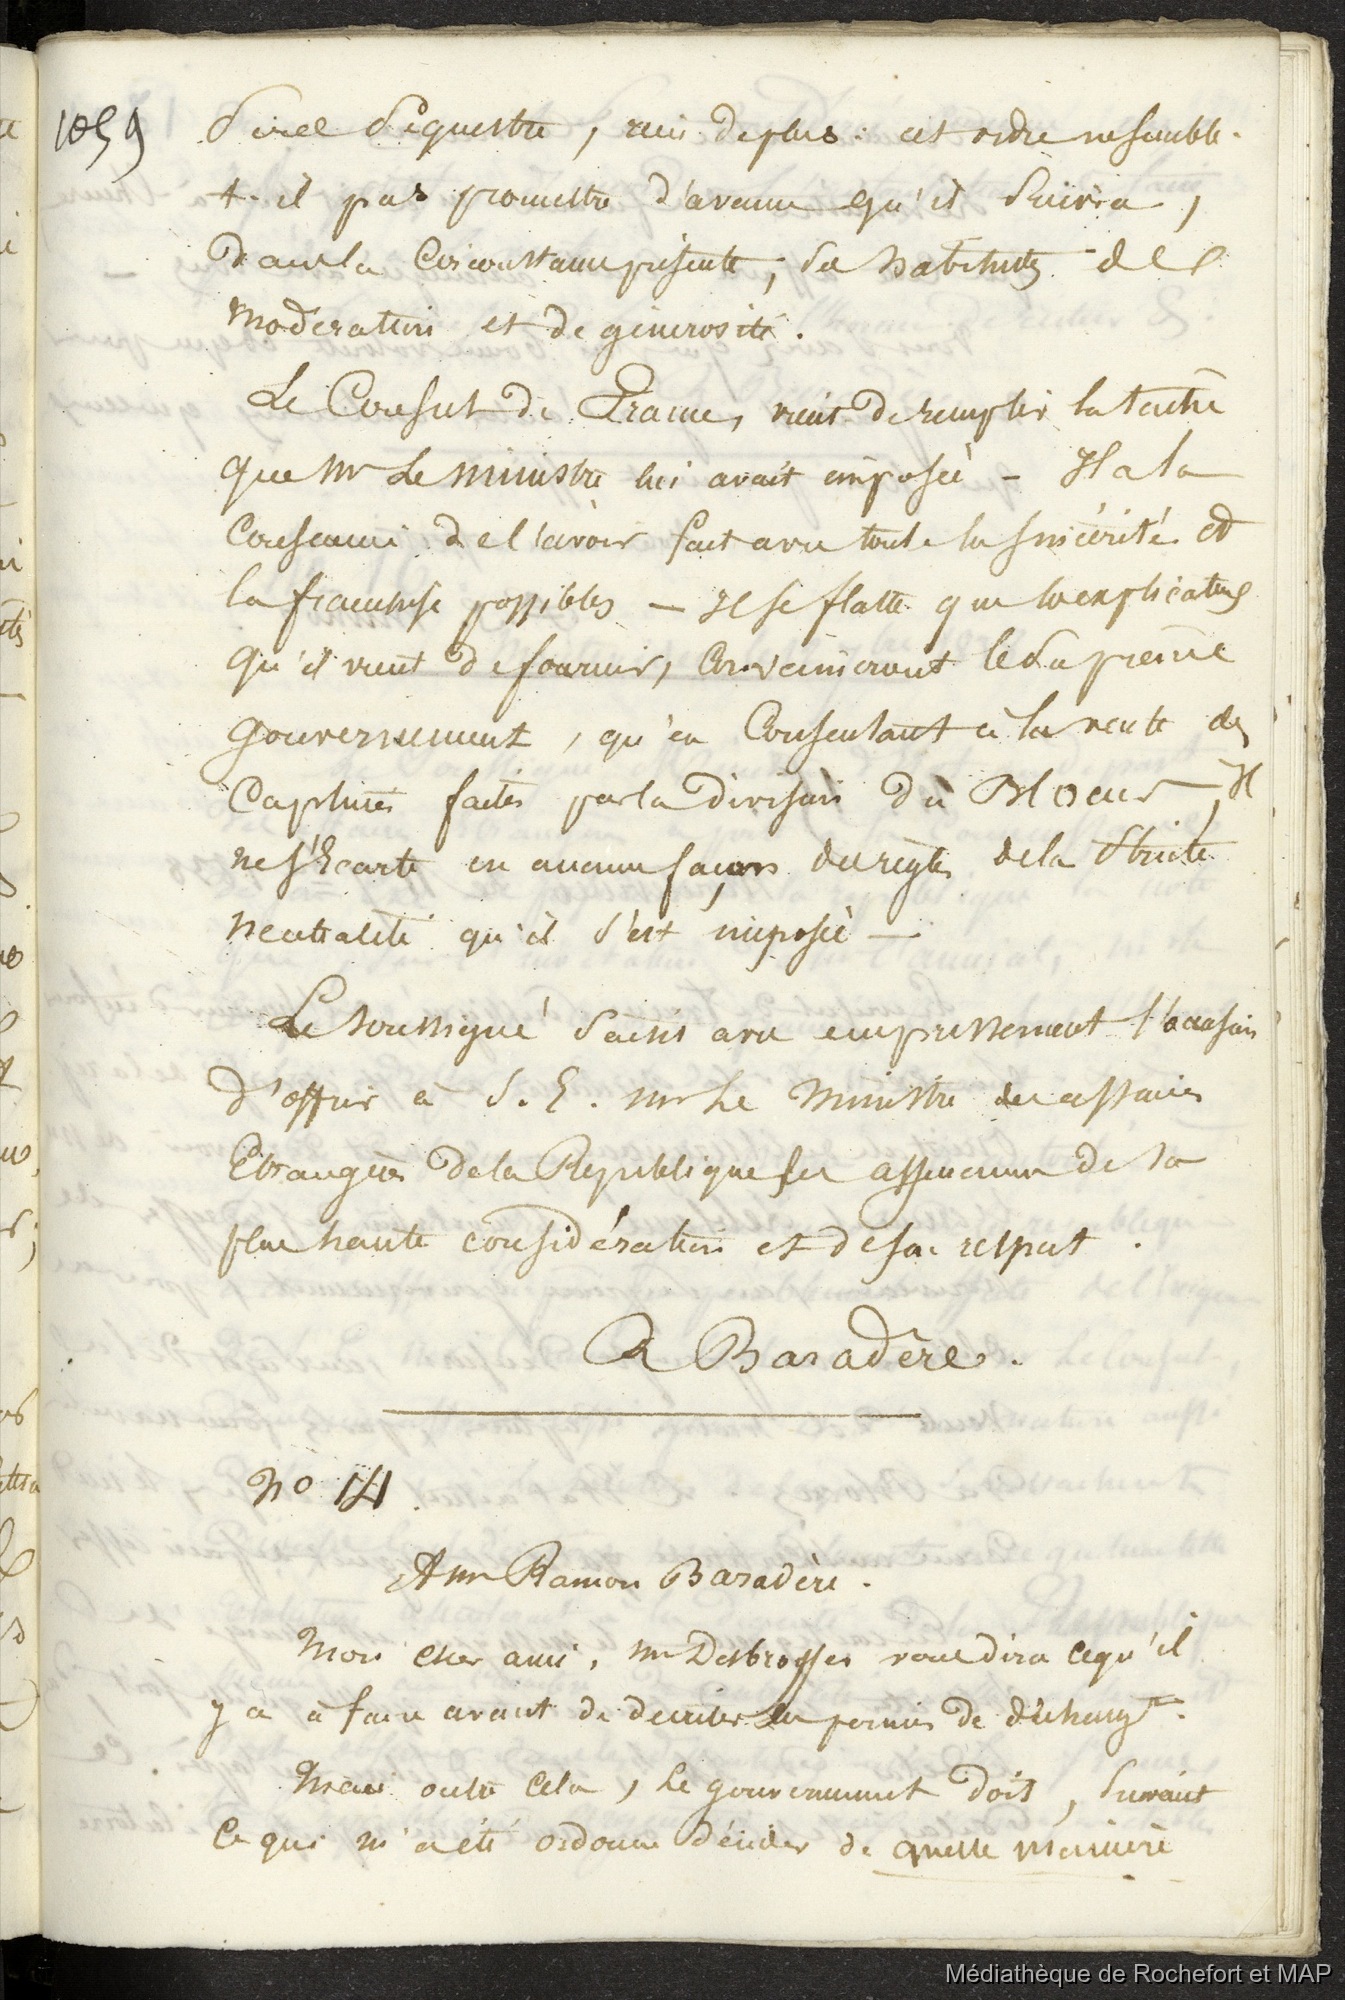 1059
Simple Séquestre, rien de plus : cet ordre ne semble-
t-il pas promettre d'avance qu'il Suivra,
dans la Circonstance présente, ses habitudes de
modération et de générosité.
Le Consul de France, vient de remplir la tache
que Mr Le Ministre lui avait imposée - Il a la
Conscience de l'avoir fait avec toute la sincérité et
la franchise possibles — Il se flatte que les explications
qu'il vient de fournir, Convaincront le Suprême
Gouvernement, qu'en Consentant à la vente des
Captures faites par la Division du Blocus, Il
ne s'Ecarte en aucune façon des règles de la Stricte
neutralité qu'il s'est imposée —
Le Soussigné Saisit avec empressement l'occasion
d'offrir à S. E. Mr Le Ministre des affaires
Etrangères de la République les assurances de sa
plus haute considération et de son respect.
R Baradère.
No 14.
A Mr Ramon Baradère.
Mon cher ami, Mr Desbrosses vous dira ce qu'il
y a à faire avant de den permis de décharg.t
Mais outre Cela, Le gouvernement doit, Suivant
Ce qui m'a été ordonné décider de quelle manière
Médiathèque de Rochefort et MAP